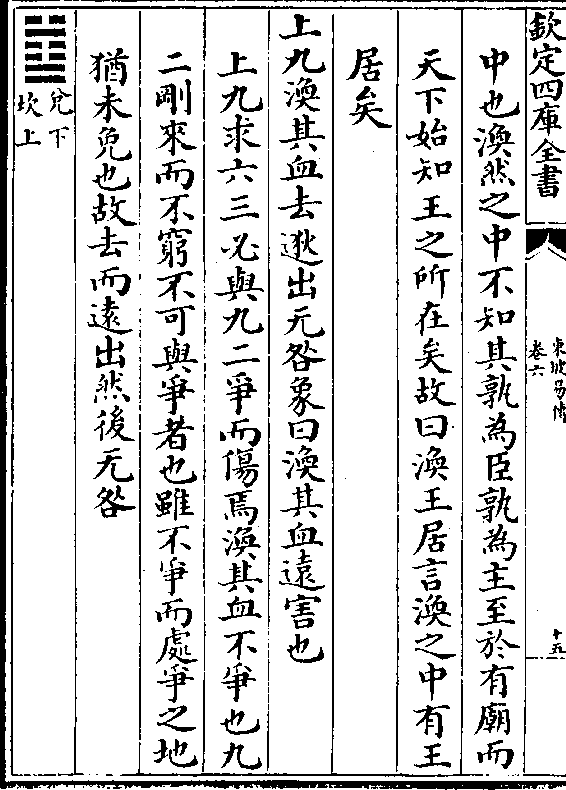 欽定四庫全書
東坡易傳
卷六
十五
中也渙然之中不知其孰為臣孰為主至於有廟而
天下始知王之所在矣故曰渙王居言渙之中有王
居矣
上九渙其血去逖出无咎象曰渙其血遠害也
上九求六三必與九二爭而傷焉渙其血不爭也九
二剛來而不窮不可與爭者也雖不爭而處爭之地
猶未免也故去而遠出然後无咎
兌下
坎上